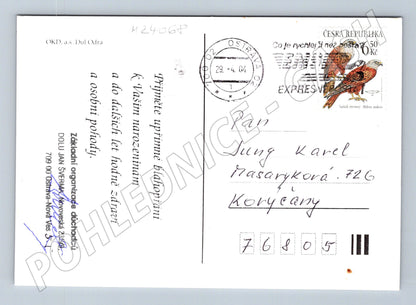 OKD, a.s. Důl Odra
M2406P
Přijměte upřímné blahopřání
k Vašim narozeninám
a do dalších let hodně zdraví
a osobní pohody.
Základní organizace důchodců
DOLU JAN ŠVERMA
709 00 Ostrava-Mar.
OSTRAVA 02
29.-4.04
Co je rychlejší než pošta?
EXPRESPOST
ČESKÁ REPUBLIKA
6 50 Kč
Pan
Jung Karel
Masarykova 726
Koryčany
76805
POHLEDNICE